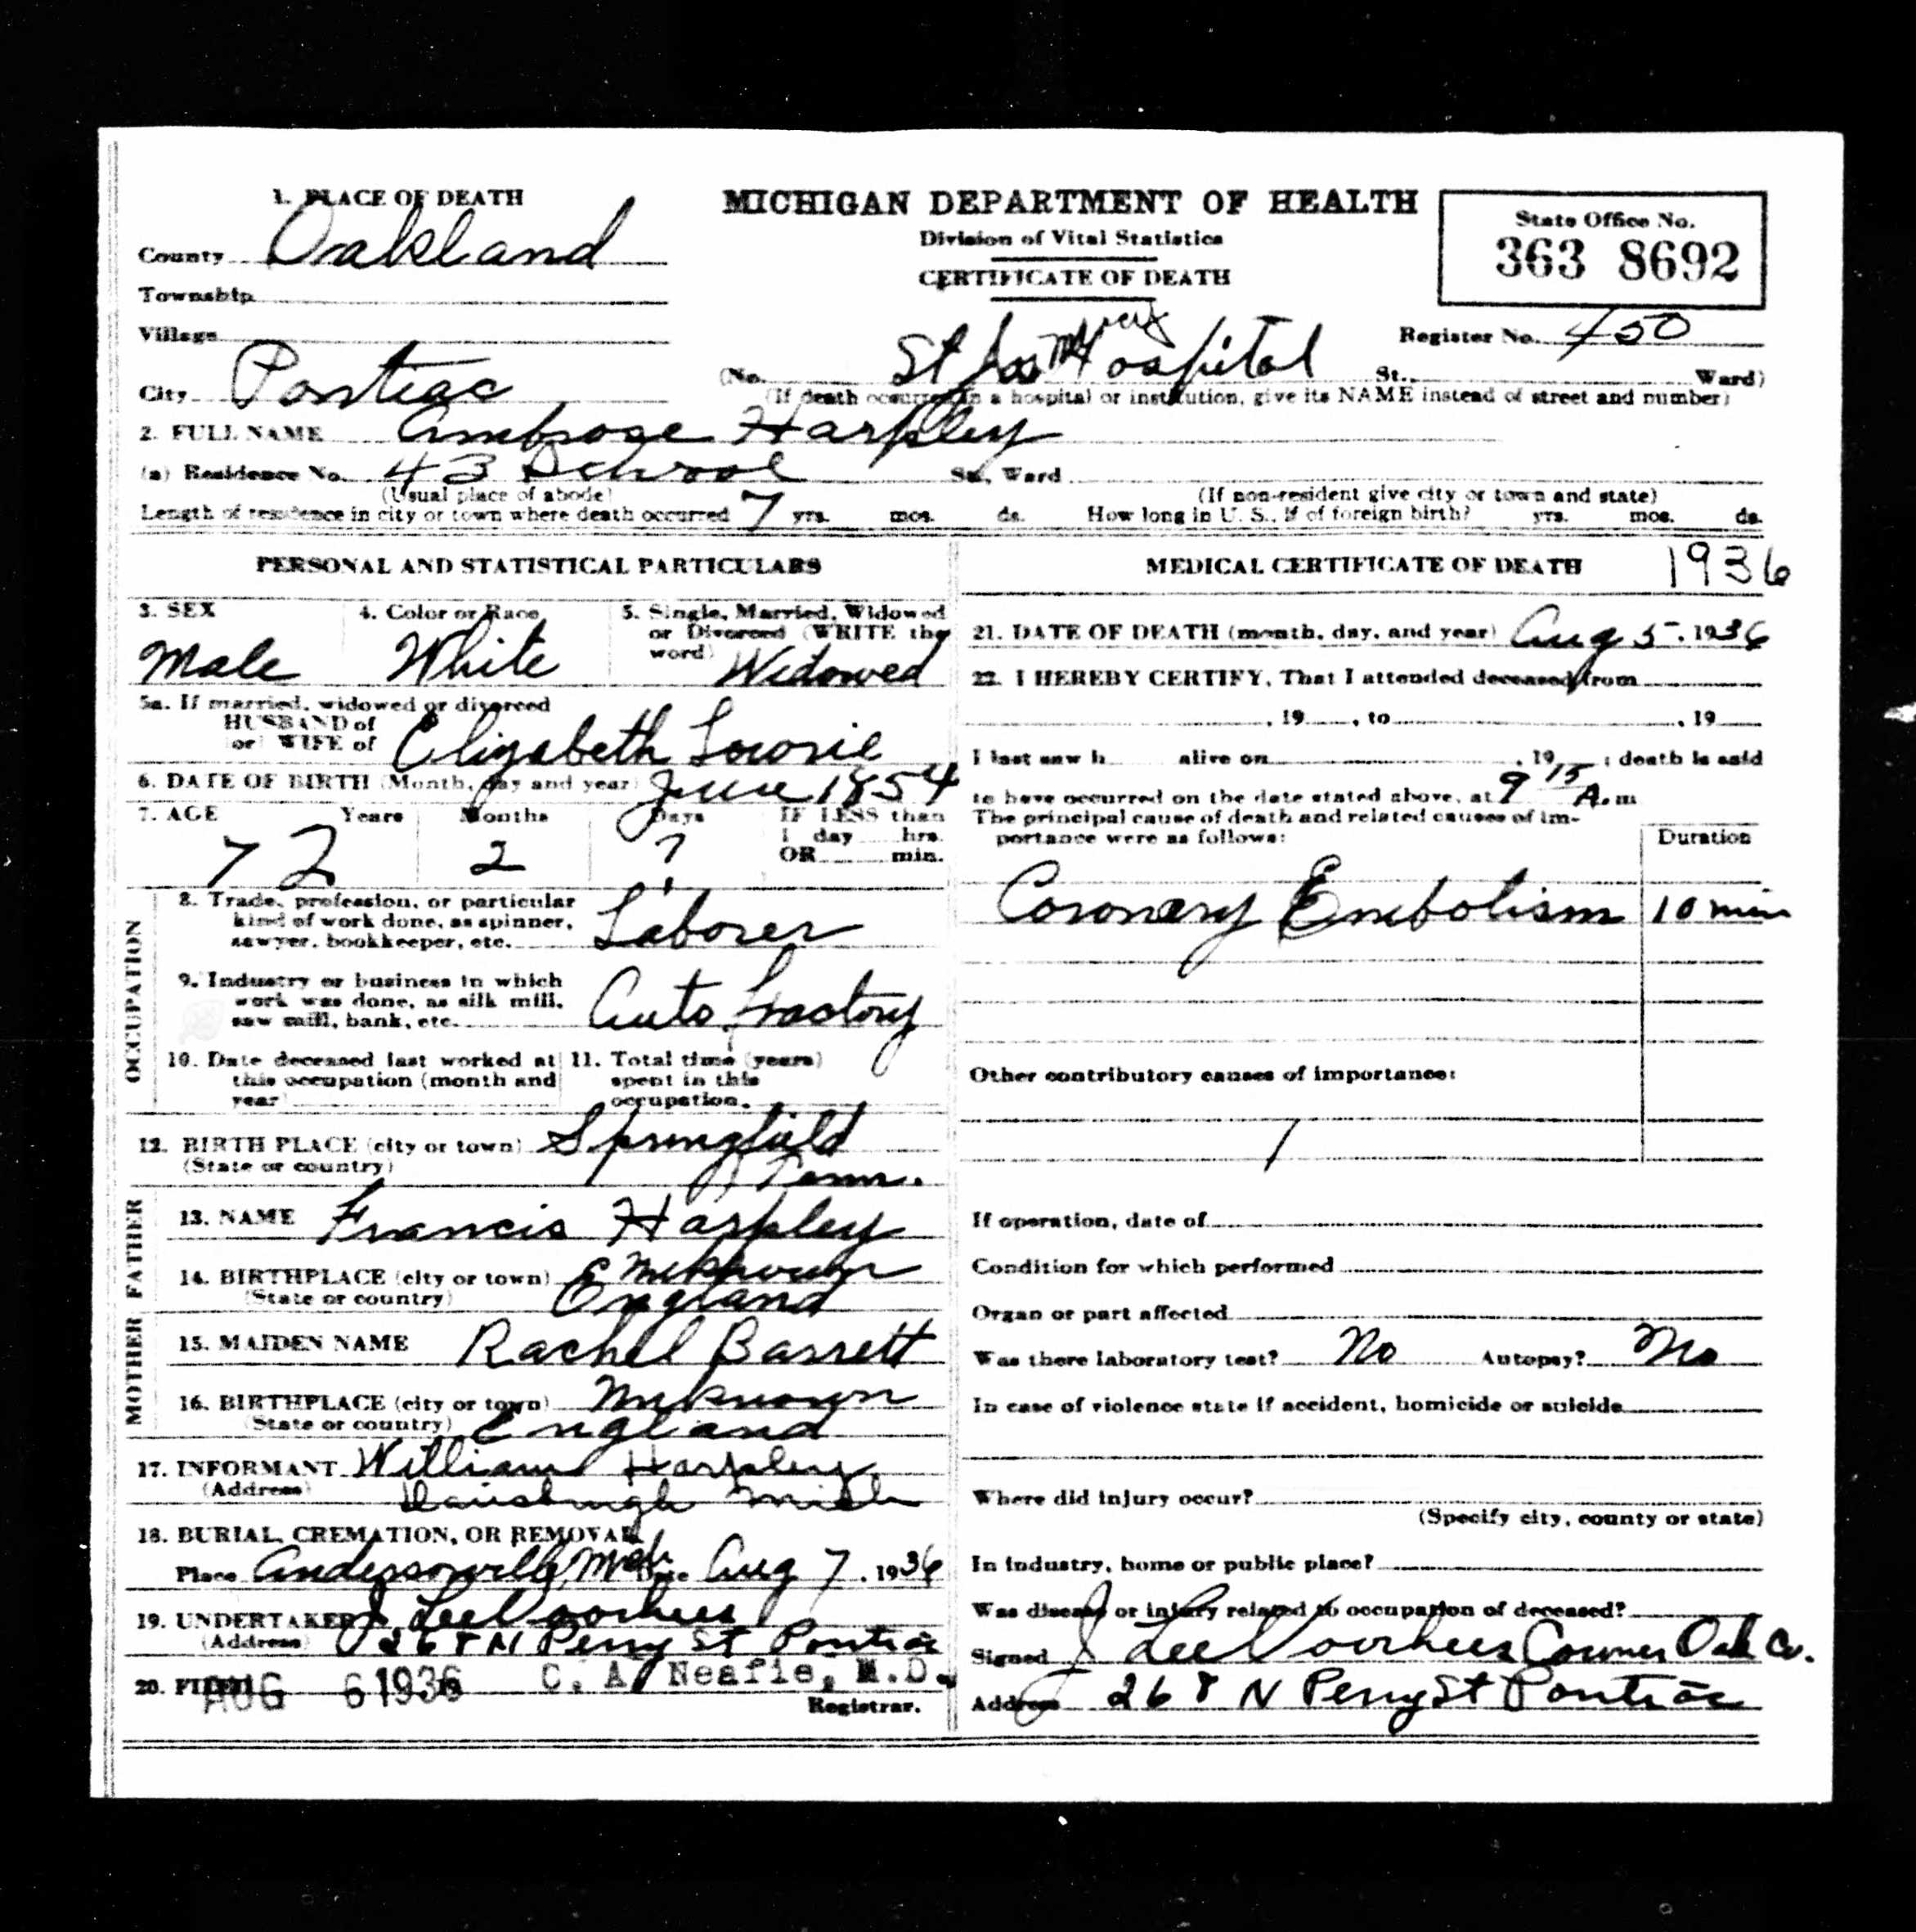 1. PLACE OF DEATH
MICHIGAN DEPARTMENT OF HEALTH
Division of Vital Statistics
CERTIFICATE OF DEATH
State Office No.
363 8692
County Oakland
Township
Village
Register No. 450
City Pontiac
(No. St Jos Mercy Hospital St., Ward)
(If death occurred in a hospital or institution, give its NAME instead of street and number)
2. FULL NAME Ambrose Harpley
(a) Residence No. 43 School St., Ward
(Usual place of abode) (If non-resident give city or town and state)
Length of residence in city or town where death occurred 7 yrs. mos. ds. How long in U. S., if of foreign birth? yrs. mos. ds.
PERSONAL AND STATISTICAL PARTICULARS
3. SEX
Male
4. Color or Race
White
5. Single, Married, Widowed
or Divorced (WRITE the
word)
Widowed
5a. If married, widowed or divorced
HUSBAND of
(or) WIFE of Elizabeth
6. DATE OF BIRTH (Month, day and year) June 1854
7. AGE Years Months Days IF LESS than
1 day hrs.
OR min.
72 2 ?
OCCUPATION
8. Trade, profession, or particular
kind of work done, as spinner,
sawyer, bookkeeper, etc. Laborer
9. Industry or business in which
work was done, as silk mill,
saw mill, bank, etc. Auto Factory
10. Date deceased last worked at
this occupation (month and
year)
11. Total time (years)
spent in this
occupation.
12. BIRTH PLACE (city or town) Springfield
(State or country) Penn.
FATHER
13. NAME Francis Harpley
14. BIRTHPLACE (city or town) Unknown
(State or country) England
MOTHER
15. MAIDEN NAME Rachel Barrett
16. BIRTHPLACE (city or town) Unknown
(State or country) England
17. INFORMANT William Harpley
(Address) Davisburgh Mich
18. BURIAL, CREMATION, OR REMOVAL
Place Andersonville, Mich Date Aug 7, 1936
19. UNDERTAKER J Lee Voorhees
(Address) 268 N Perry St Pontiac
20. FILED AUG 6 1936 C. A. Neafie, M.D.
Registrar.
MEDICAL CERTIFICATE OF DEATH 1936
21. DATE OF DEATH (month, day, and year) Aug 5, 1936
22. I HEREBY CERTIFY, That I attended deceased from
, 19 , to , 19
I last saw h alive on , 19 ; death is said
to have occurred on the date stated above, at 9 15 A.m
The principal cause of death and related causes of im-
portance were as follows:
Duration
Coronary Embolism 10 min
Other contributory causes of importance:
If operation, date of
Condition for which performed
Organ or part affected
Was there laboratory test? No Autopsy? No
In case of violence state if accident, homicide or suicide
Where did injury occur?
(Specify city, county or state)
In industry, home or public place?
Was disease or injury related to occupation of deceased?
Signed J Lee Voorhees Coroner Oak Co.
Address 268 N Perry St Pontiac